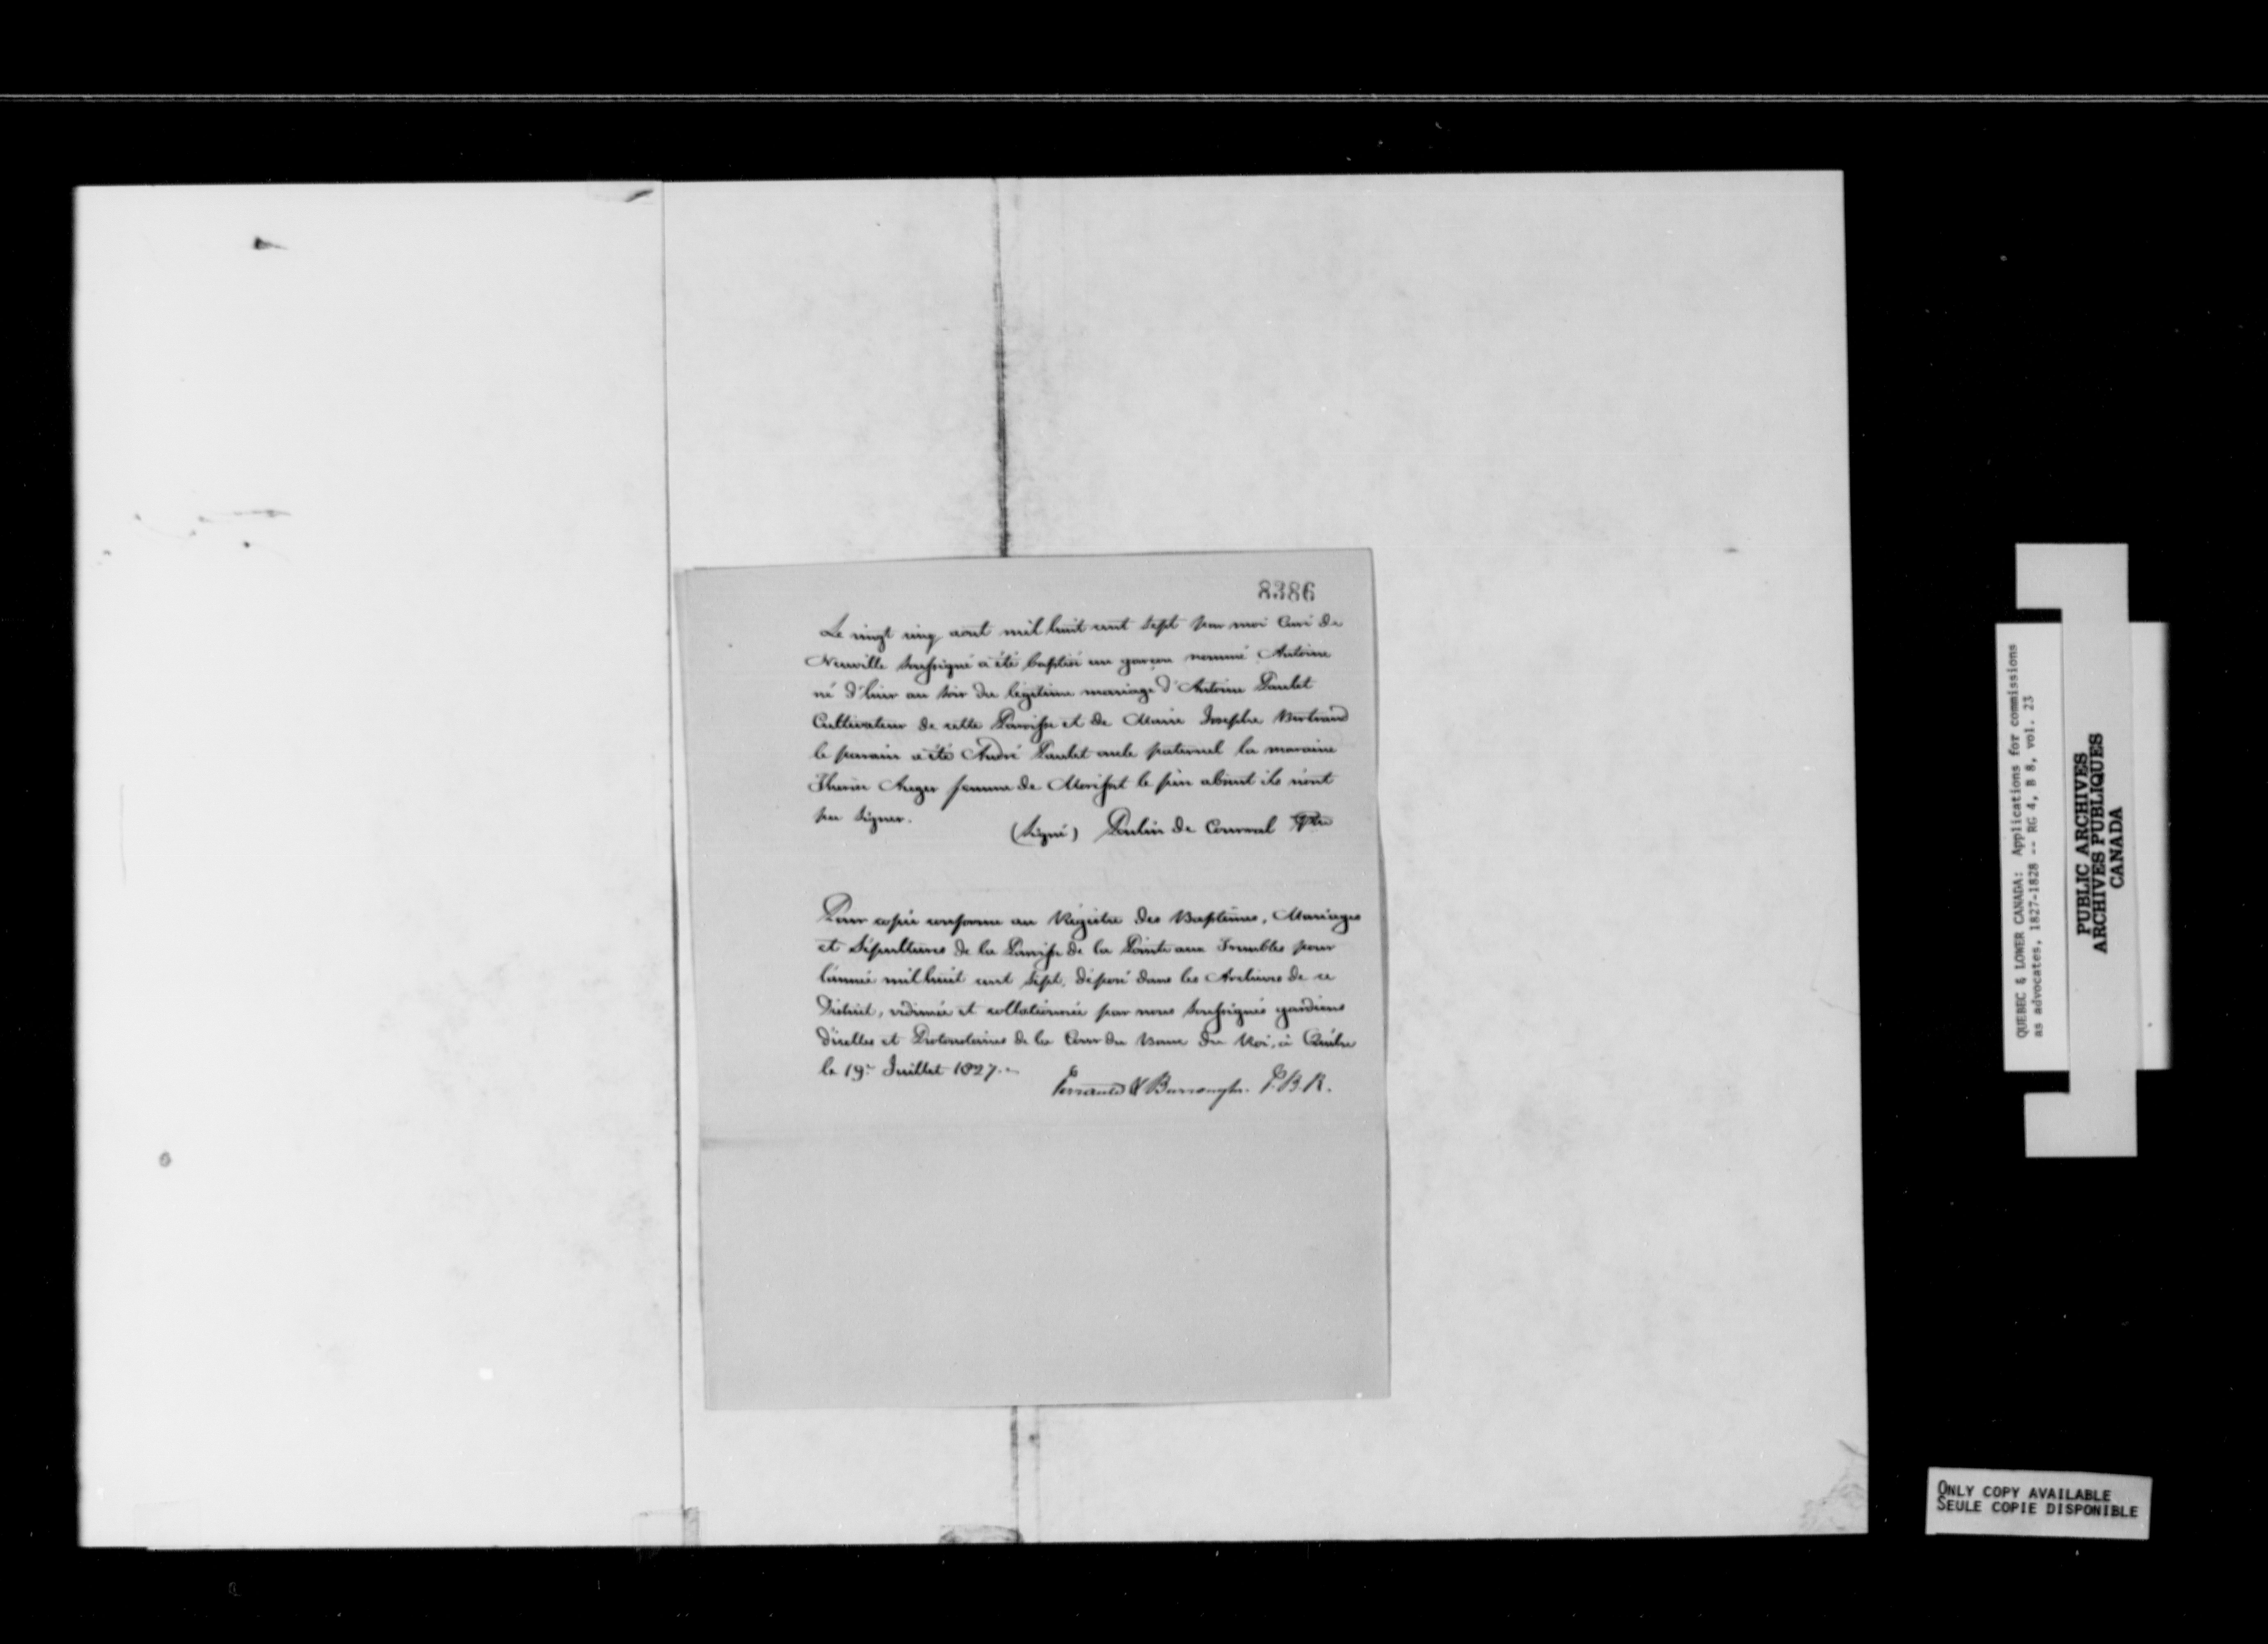 8386
Le vingt cinq aout mil huit cent sept par moi Curé de
Neuville soussigné a été baptisé un garçon nommé Antoine
né d'hier au soir du légitime mariage d'Antoine Paulet
Cultivateur de cette Paroisse et de Marie Josephe Bertrand
le parain a été André Paulet oncle paternel la maraine
Therese Auger femme de Morisset le père absent ils n'ont
pu signer.
(Signé) Poulin de Courval Ptre
Pour copie conforme au Régistre des Baptêmes, Mariages
et Sépultures de la Paroisse de la Pointe aux Trembles pour
l'année mil huit cent sept, déposé dans les Archives de ce
District, vidimée et collationnée par nous soussignés gardiens
d'icelles et Protonotaires de la Cour du Banc du Roi, à Québec
le 19e Juillet 1827.
Perrault & Burroughs. P.B.R.
QUEBEC & LOWER CANADA: Applications for commissions
as advocates, 1827-1828 -- RG 4, B 8, vol. 23
PUBLIC ARCHIVES
ARCHIVES PUBLIQUES
CANADA
ONLY COPY AVAILABLE
SEULE COPIE DISPONIBLE